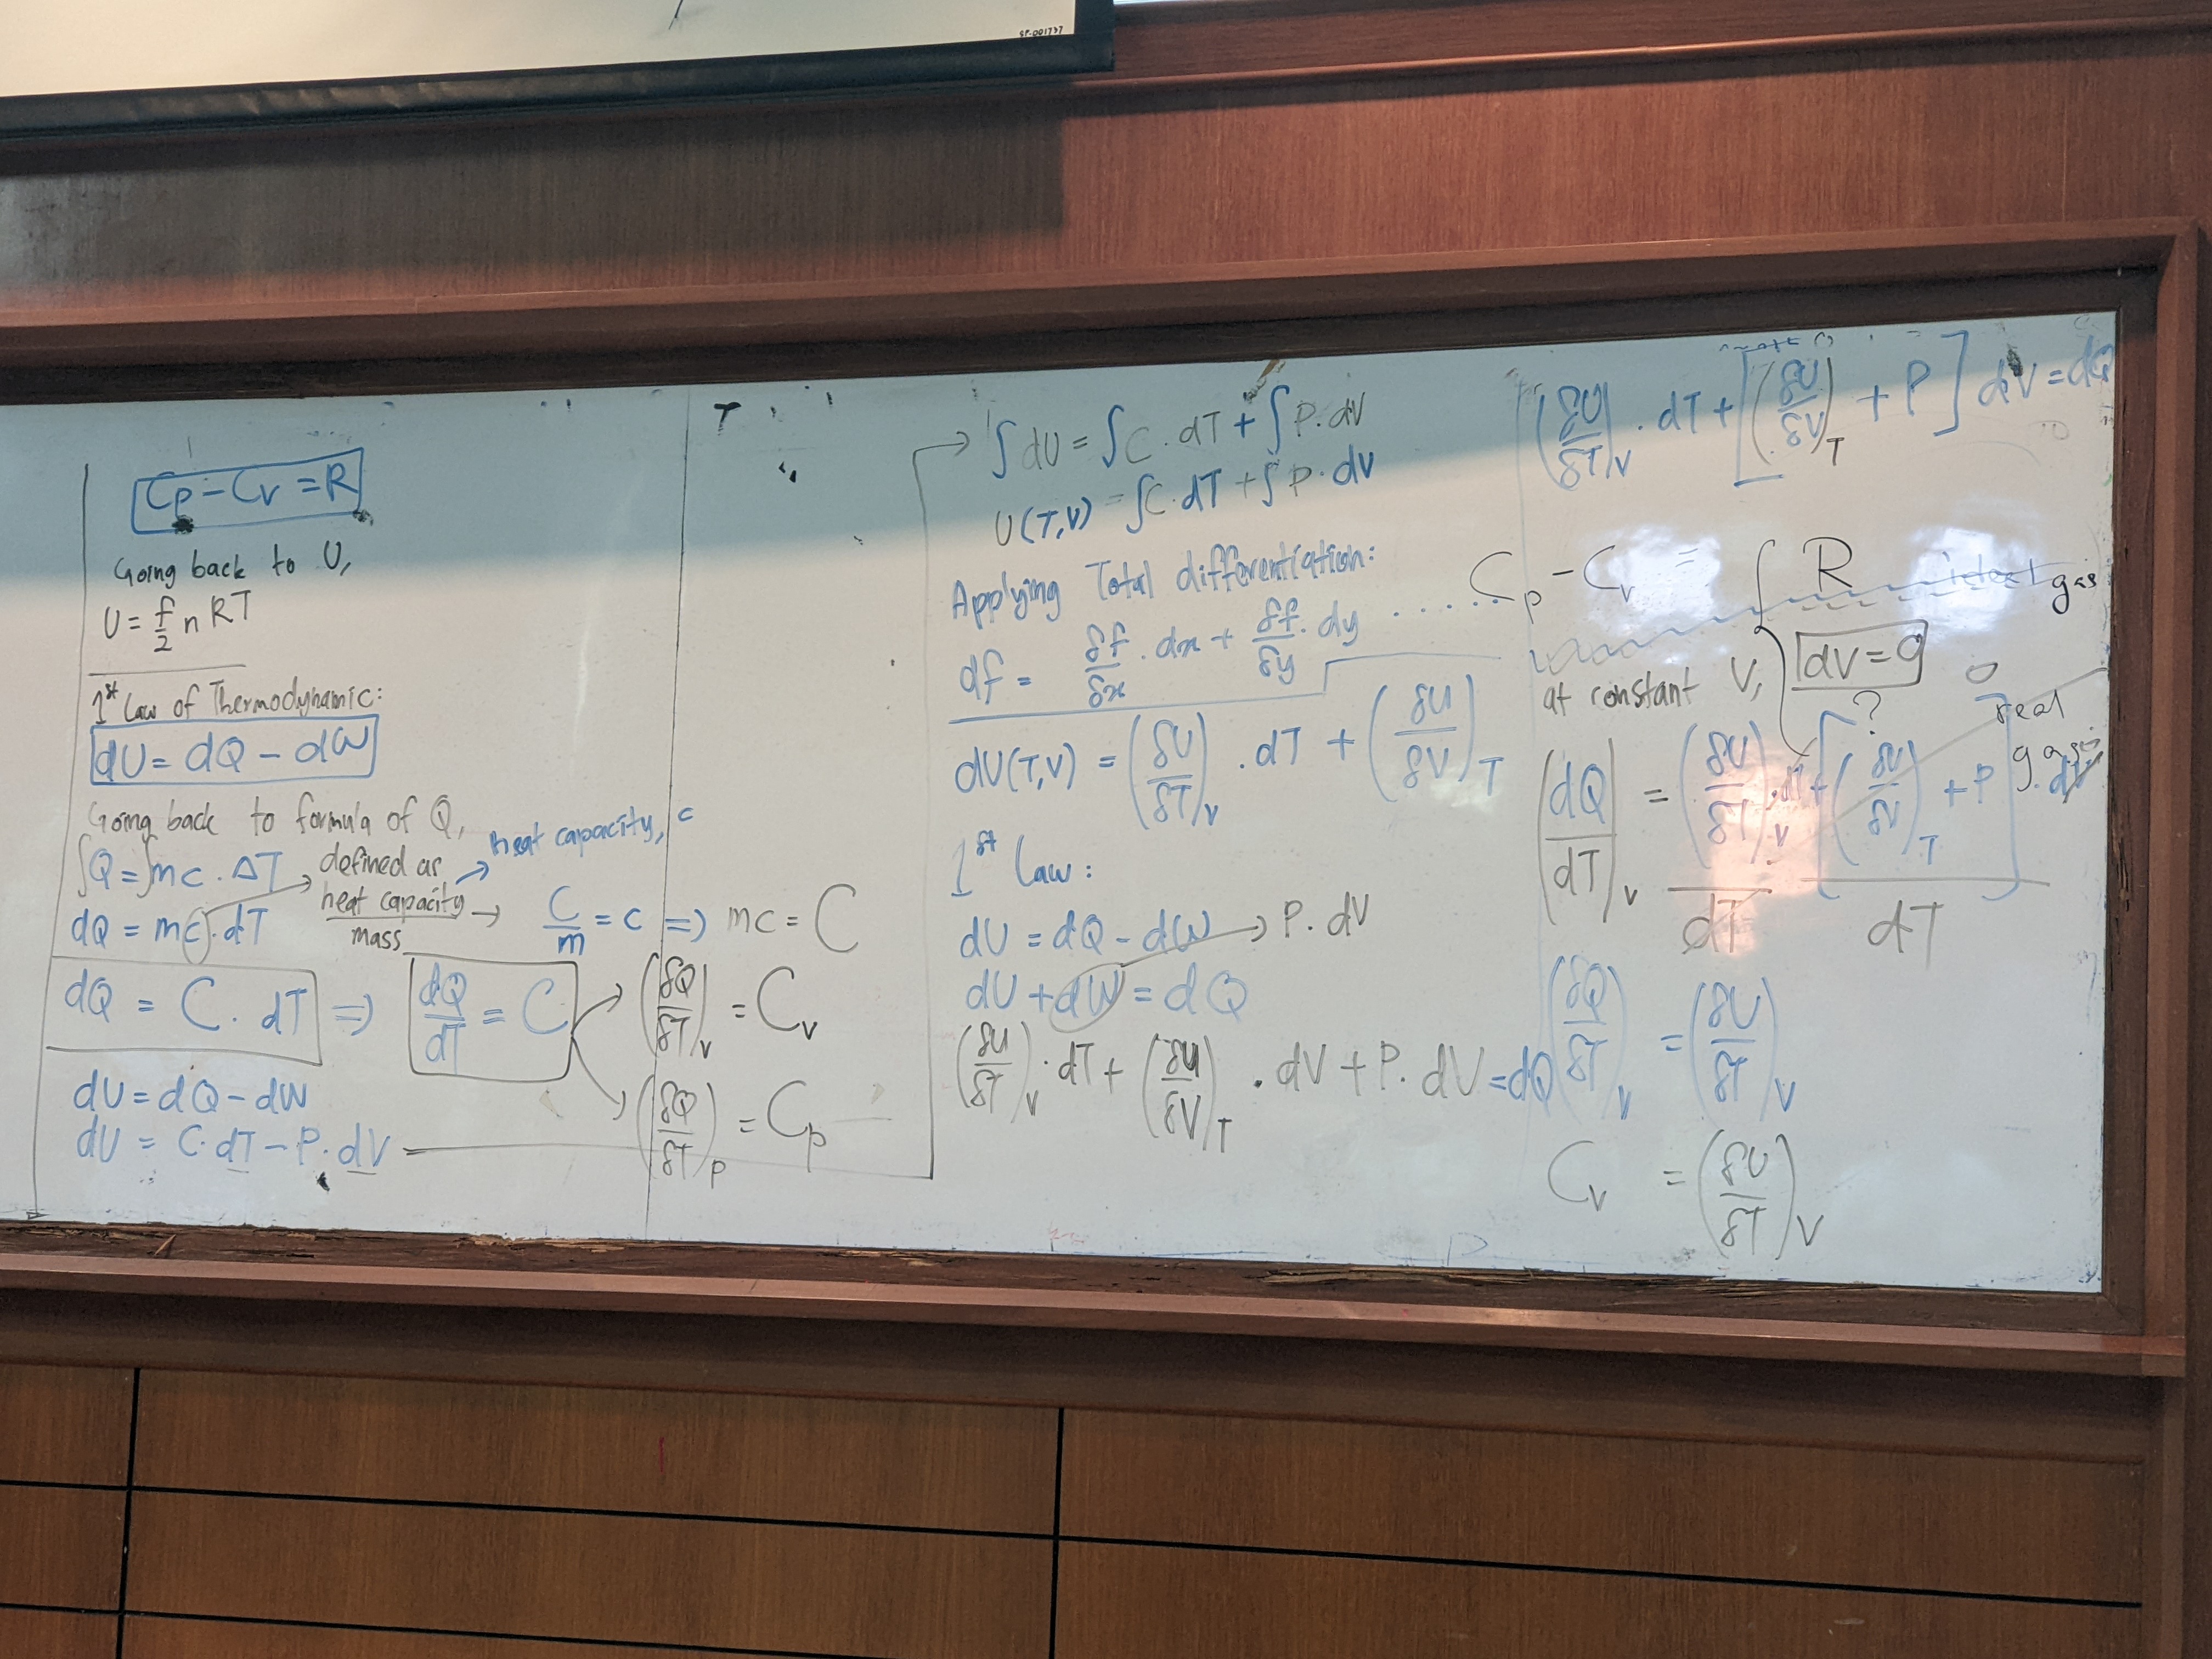 SP-001737
Cp - Cv = R
Going back to U,
U = f/2 n RT
1st Law of Thermodynamic:
dU = dQ - dW
Going back to formula of Q,
∫Q = ∫mc . ΔT → defined as heat capacity / mass → heat capacity, c
dQ = mc . dT
→ C/m = c ⇒ mc = C
dQ = C . dT ⇒ dQ/dT = C
(δQ/δT)v = Cv
(δQ/δT)p = Cp
dU = dQ - dW
dU = C . dT - P . dV
∫dU = ∫C . dT + ∫P . dV
U(T,V) = ∫C . dT + ∫P . dV
Applying Total differentiation:
df = δf/δx . dx + δf/δy . dy ......
dU(T,V) = (δU/δT)v . dT + (δU/δV)T
1st Law:
dU = dQ - dW → P . dV
dU + dW = dQ
(δU/δT)v . dT + (δU/δV)T . dV + P . dV = dQ
(δU/δT)v . dT + [(δU/δV)T + P] dV = dQ
Cp - Cv = { R ideal gas
real gas
at constant V, dV = 0
?
0
(dQ/dT)v = (δU/δT)v . dT / dT + [(δU/δV)T + P] . dV / dT
(δQ/δT)v = (δU/δT)v
Cv = (δU/δT)v